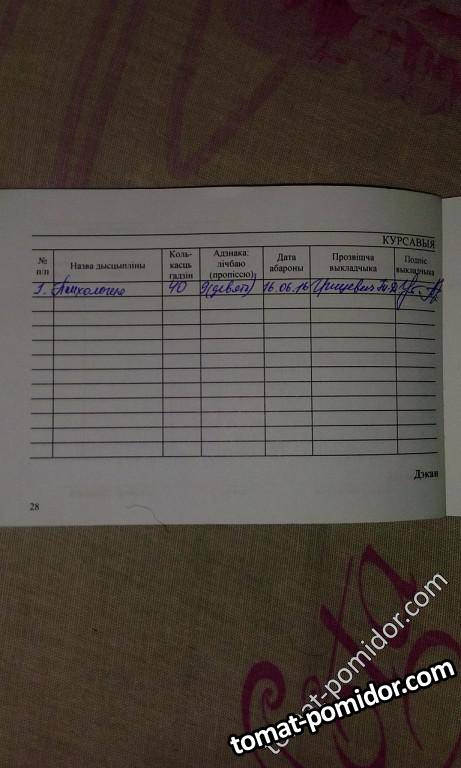 КУРСАВЫЯ
№ п/п Назва дысцыпліны Коль-касць гадзін Адзнака: лічбаю (пропіссю) Дата абароны Прозвішча выкладчыка Подпіс выкладчыка
1. Психология 40 9(девять) 16.06.16
Дэкан
28
tomat-pomidor.com
tomat-pomidor.com